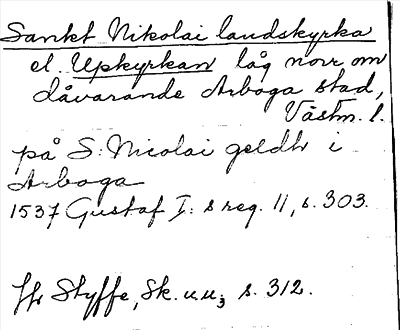 Sankt Nikolai landskyrka
el. Upkyrkan låg norr om
dåvarande Arboga stad,
Västm. l.
på S: Nicolai geldh i
Arboga
1537 Gustaf I: s reg. 11, s. 303.
Jfr Styffe, Sk. u.u3 s. 312.